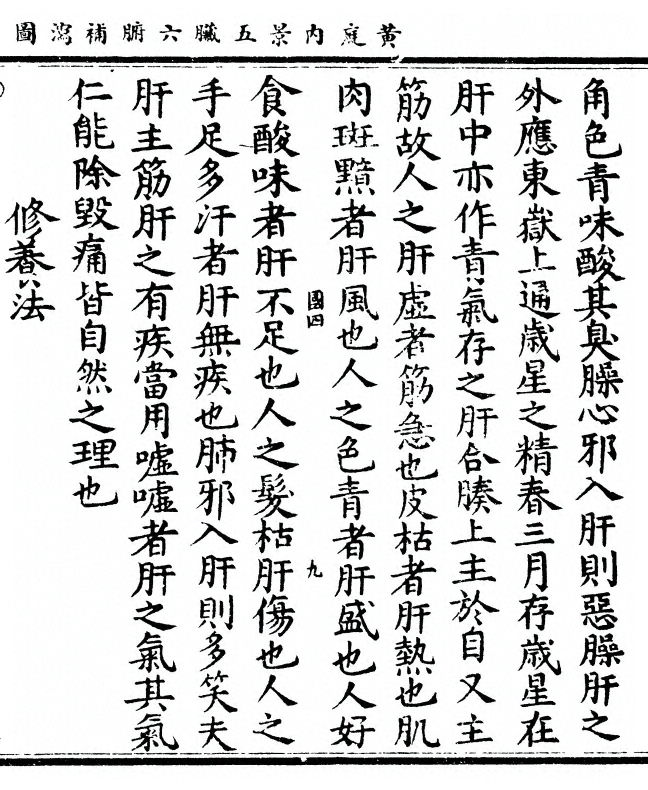 黃庭內景五臟六腑補瀉圖
角色青味酸其臭臊心邪入肝則惡臊肝之
外應東嶽上通歲星之精春三月存歲星在
肝中亦作青氣存之肝合腠上主於目又主
筋故人之肝虛者筋急也皮枯者肝熱也肌
肉斑黯者肝風也人之色青者肝盛也人好
國四
九
食酸味者肝不足也人之髮枯肝傷也人之
手足多汗者肝無疾也肺邪入肝則多笑夫
肝主筋肝之有疾當用噓噓者肝之氣其氣
仁能除毀痛皆自然之理也
修養法